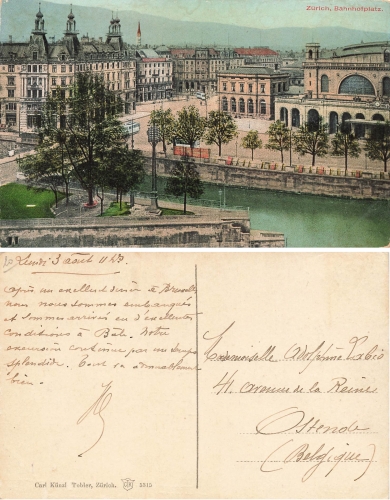 Zürich, Bahnhofplatz.
Lundi 3 août
Après un excellent diner à Bruxelles
nous nous sommes embarqués
et sommes arrivés en d'excellentes
conditions à Bâle. Notre
excursion continue par un temps
splendide. Tout va
bien.
Mademoiselle Adolphine
41 avenue de la Reine
Ostende
(Belgique)
Carl Künzli Tobler, Zürich. 3315